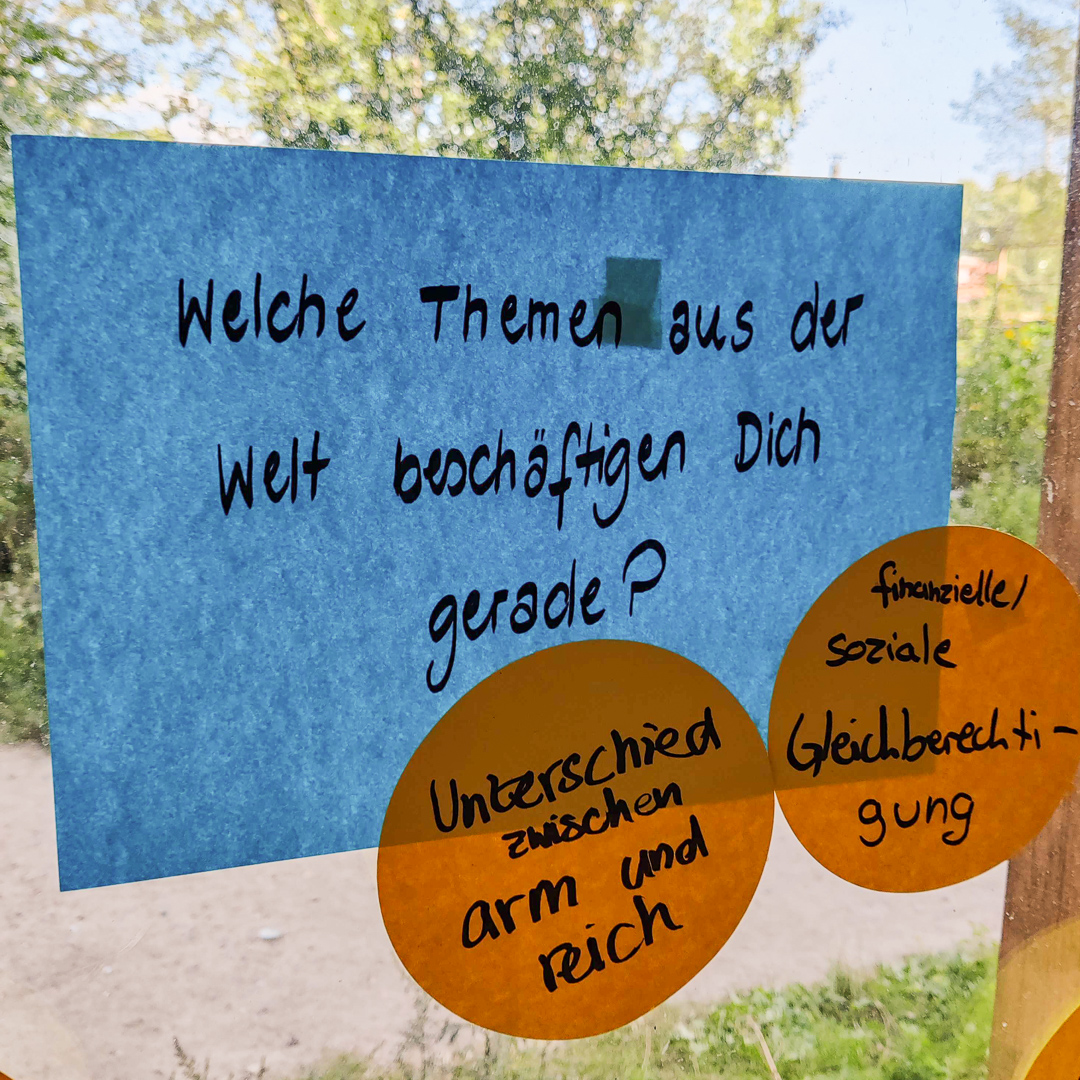 Welche Themen aus der
Welt beschäftigen Dich
gerade?
Unterschied
zwischen
arm und
reich
finanzielle/
soziale
Gleichberechti-
gung